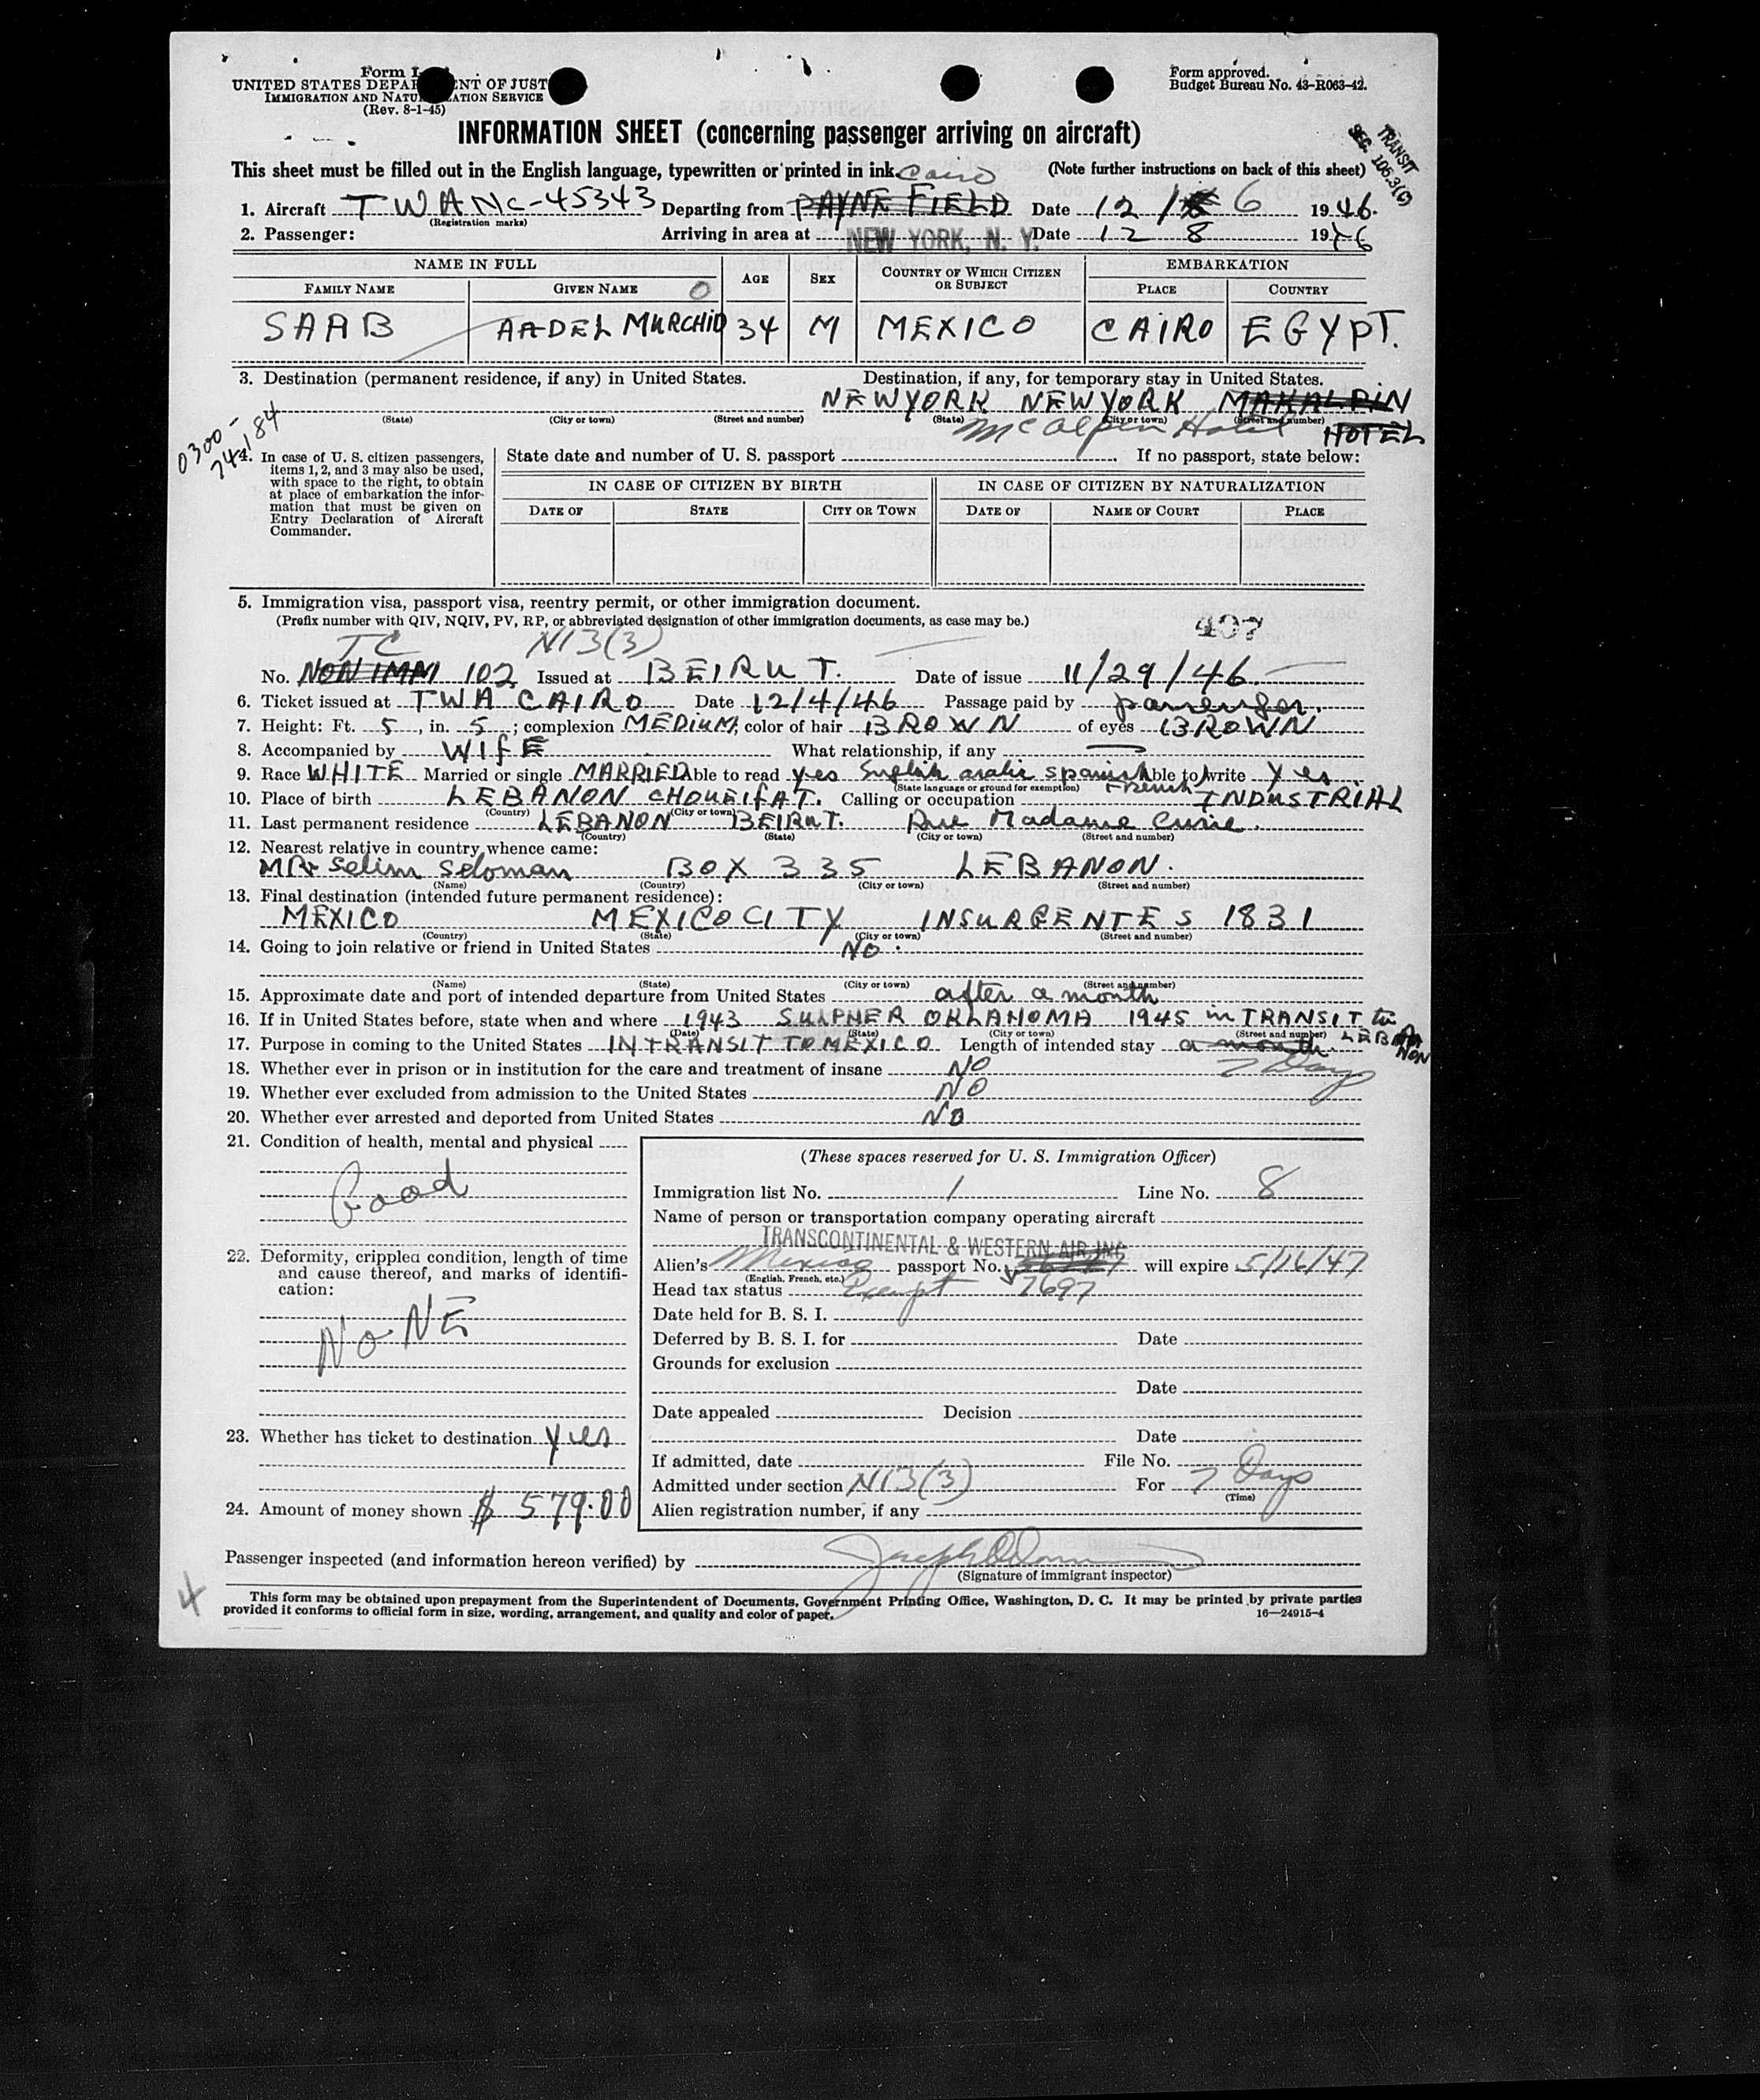 Form I-
UNITED STATES DEPAR ENT OF JUST
IMMIGRATION AND NATU ATION SERVICE
(Rev. 8-1-45)
Form approved.
Budget Bureau No. 43-R063-42.
INFORMATION SHEET (concerning passenger arriving on aircraft)
TRANSIT
SEC. 105.3(C)
This sheet must be filled out in the English language, typewritten or printed in ink. (Note further instructions on back of this sheet)
Cairo
1. Aircraft TWA NC-45343 Departing from PAYNE FIELD Date 12/ 6 1946.
(Registration marks)
2. Passenger: Arriving in area at NEW YORK, N. Y. Date 12 8 1946
NAME IN FULL AGE SEX COUNTRY OF WHICH CITIZEN OR SUBJECT EMBARKATION
FAMILY NAME GIVEN NAME O PLACE COUNTRY
SAAB AADEL MURCHID 34 M MEXICO CAIRO EGYPT.
3. Destination (permanent residence, if any) in United States. Destination, if any, for temporary stay in United States.
NEWYORK NEWYORK MAKALPIN HOTEL
(State) (City or town) (Street and number) (State) (City or town) (Street and number)
McAlpin Hotel
0300-
74184
4. In case of U. S. citizen passengers, items 1, 2, and 3 may also be used, with space to the right, to obtain at place of embarkation the information that must be given on Entry Declaration of Aircraft Commander.
State date and number of U. S. passport . If no passport, state below:
IN CASE OF CITIZEN BY BIRTH IN CASE OF CITIZEN BY NATURALIZATION
DATE OF STATE CITY OR TOWN DATE OF NAME OF COURT PLACE
5. Immigration visa, passport visa, reentry permit, or other immigration document.
(Prefix number with QIV, NQIV, PV, RP, or abbreviated designation of other immigration documents, as case may be.)
407
TC N13(3)
No. NON IMMI 102 Issued at BEIRUT. Date of issue 11/29/46.
6. Ticket issued at TWA CAIRO Date 12/4/46 Passage paid by passenger.
7. Height: Ft. 5, in. 5; complexion MEDIUM; color of hair BROWN of eyes BROWN
8. Accompanied by WIFE What relationship, if any
9. Race WHITE Married or single MARRIED Able to read yes English arabic spanish Able to write yes
(State language or ground for exemption) French
10. Place of birth LEBANON CHOUEIFAT. Calling or occupation INDUSTRIAL
(Country) (City or town)
11. Last permanent residence LEBANON BEIRUT. Rue Madame Curie.
(Country) (State) (City or town) (Street and number)
12. Nearest relative in country whence came:
MR Selim Seloman BOX 335 LEBANON.
(Name) (Country) (City or town) (Street and number)
13. Final destination (intended future permanent residence):
MEXICO MEXICO CITY INSURGENTES 1831
(Country) (State) (City or town) (Street and number)
14. Going to join relative or friend in United States NO.
(Name) (State) (City or town) (Street and number)
15. Approximate date and port of intended departure from United States after a month
16. If in United States before, state when and where 1943 SULPHER OKLAHOMA 1945 in TRANSIT to LEBANON
(Date) (State) (City or town) (Street and number)
17. Purpose in coming to the United States IN TRANSIT TO MEXICO Length of intended stay a month.
7 Days
18. Whether ever in prison or in institution for the care and treatment of insane NO
19. Whether ever excluded from admission to the United States NO
20. Whether ever arrested and deported from United States NO
21. Condition of health, mental and physical
Good
22. Deformity, crippled condition, length of time and cause thereof, and marks of identification:
NoNE
23. Whether has ticket to destination yes
24. Amount of money shown $ 579.00
(These spaces reserved for U. S. Immigration Officer)
Immigration list No. 1 Line No. 8
Name of person or transportation company operating aircraft
TRANSCONTINENTAL & WESTERN AIR INC
Alien's Mexico passport No. will expire 5/16/47
(English, French, etc.)
Head tax status Exempt 7697
Date held for B. S. I.
Deferred by B. S. I. for Date
Grounds for exclusion
Date
Date appealed Decision
Date
If admitted, date File No.
Admitted under section N13(3) For 7 Days
(Time)
Alien registration number, if any
Passenger inspected (and information hereon verified) by
(Signature of immigrant inspector)
4
This form may be obtained upon prepayment from the Superintendent of Documents, Government Printing Office, Washington, D. C. It may be printed by private parties
provided it conforms to official form in size, wording, arrangement, and quality and color of paper. 16—24915-4